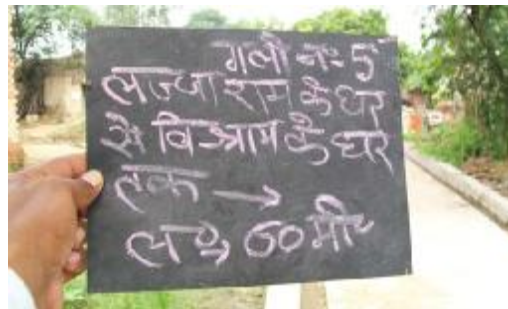 गली नं= 5
लज्जाराम के घर
से विश्राम के घर
तक →
ल० 60 मी०